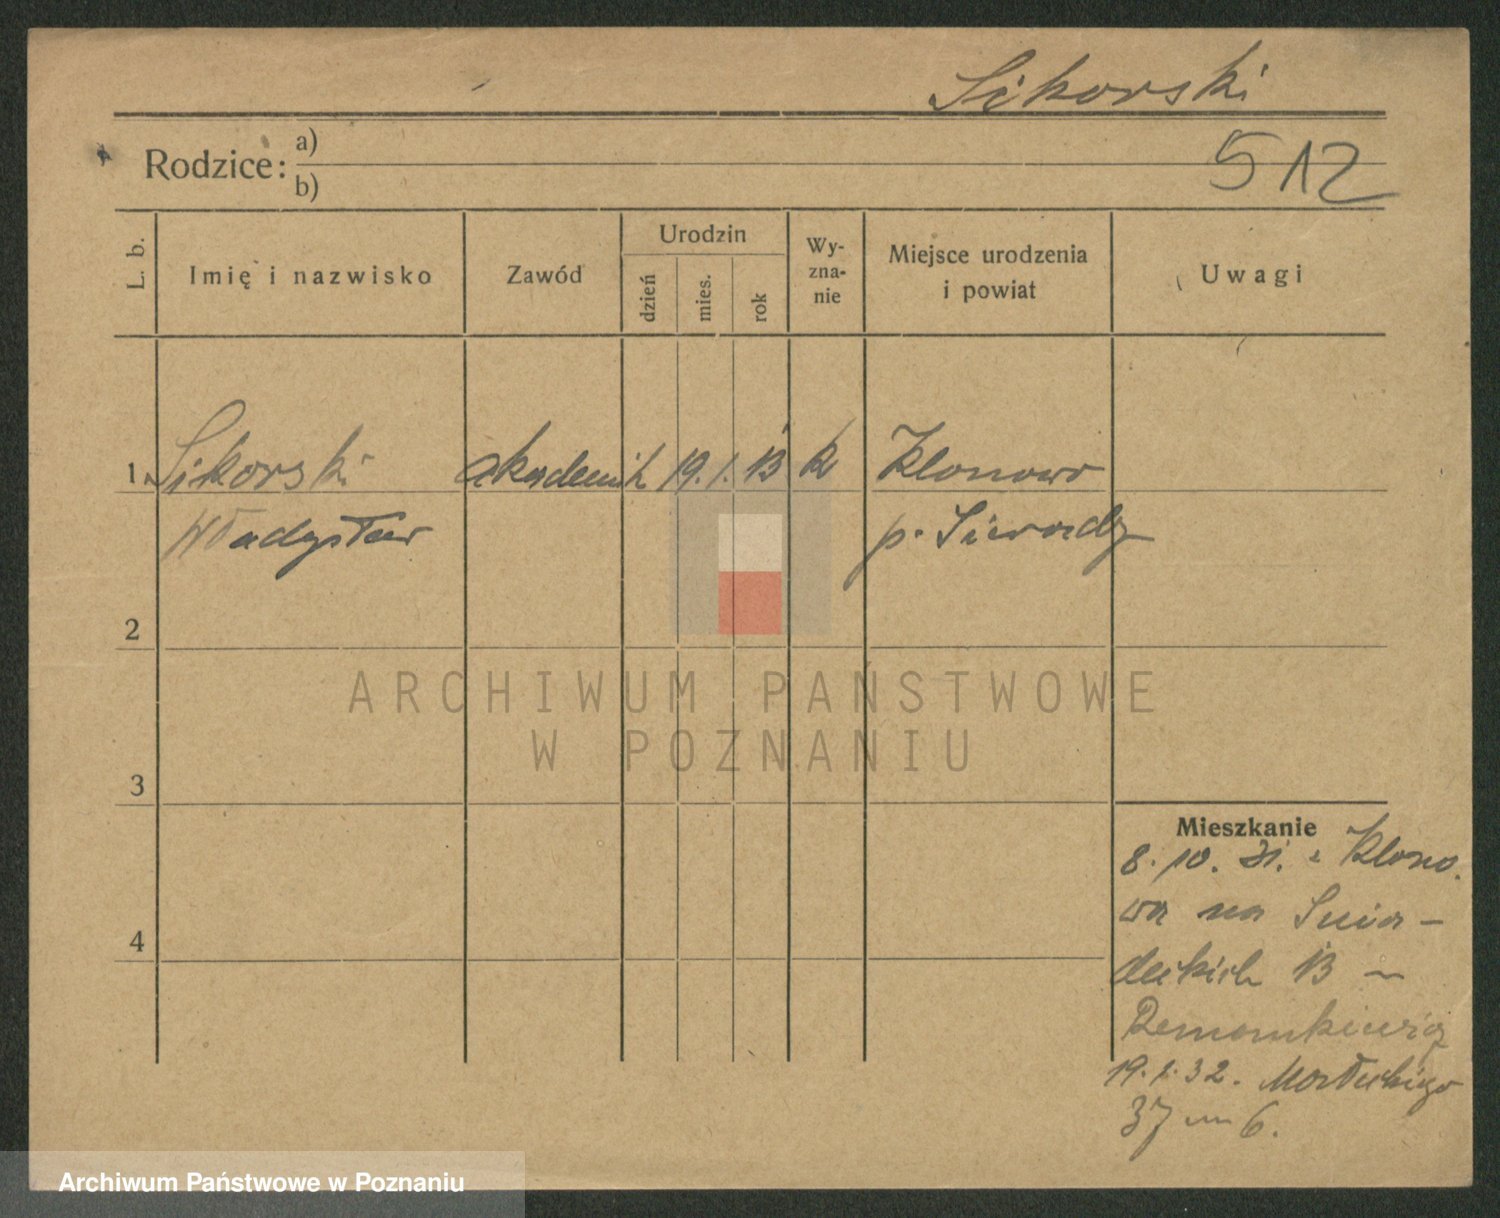 Sikorski
Rodzice: a)
b)
512
L. b.
Imię i nazwisko
Zawód
Urodzin
dzień
mies.
rok
Wy-
zna-
nie
Miejsce urodzenia
i powiat
Uwagi
1 Sikorski akademik 19. 1. 13 k Klonowo
Władysław p. Sieradz
2
3
4
Mieszkanie
8. 10. 31. z Klono.
wa na Śnia-
deckich 13 –
19. 1. 32. Małeckiego
37 m 6.
ARCHIWUM PAŃSTWOWE
W POZNANIU
Archiwum Państwowe w Poznaniu